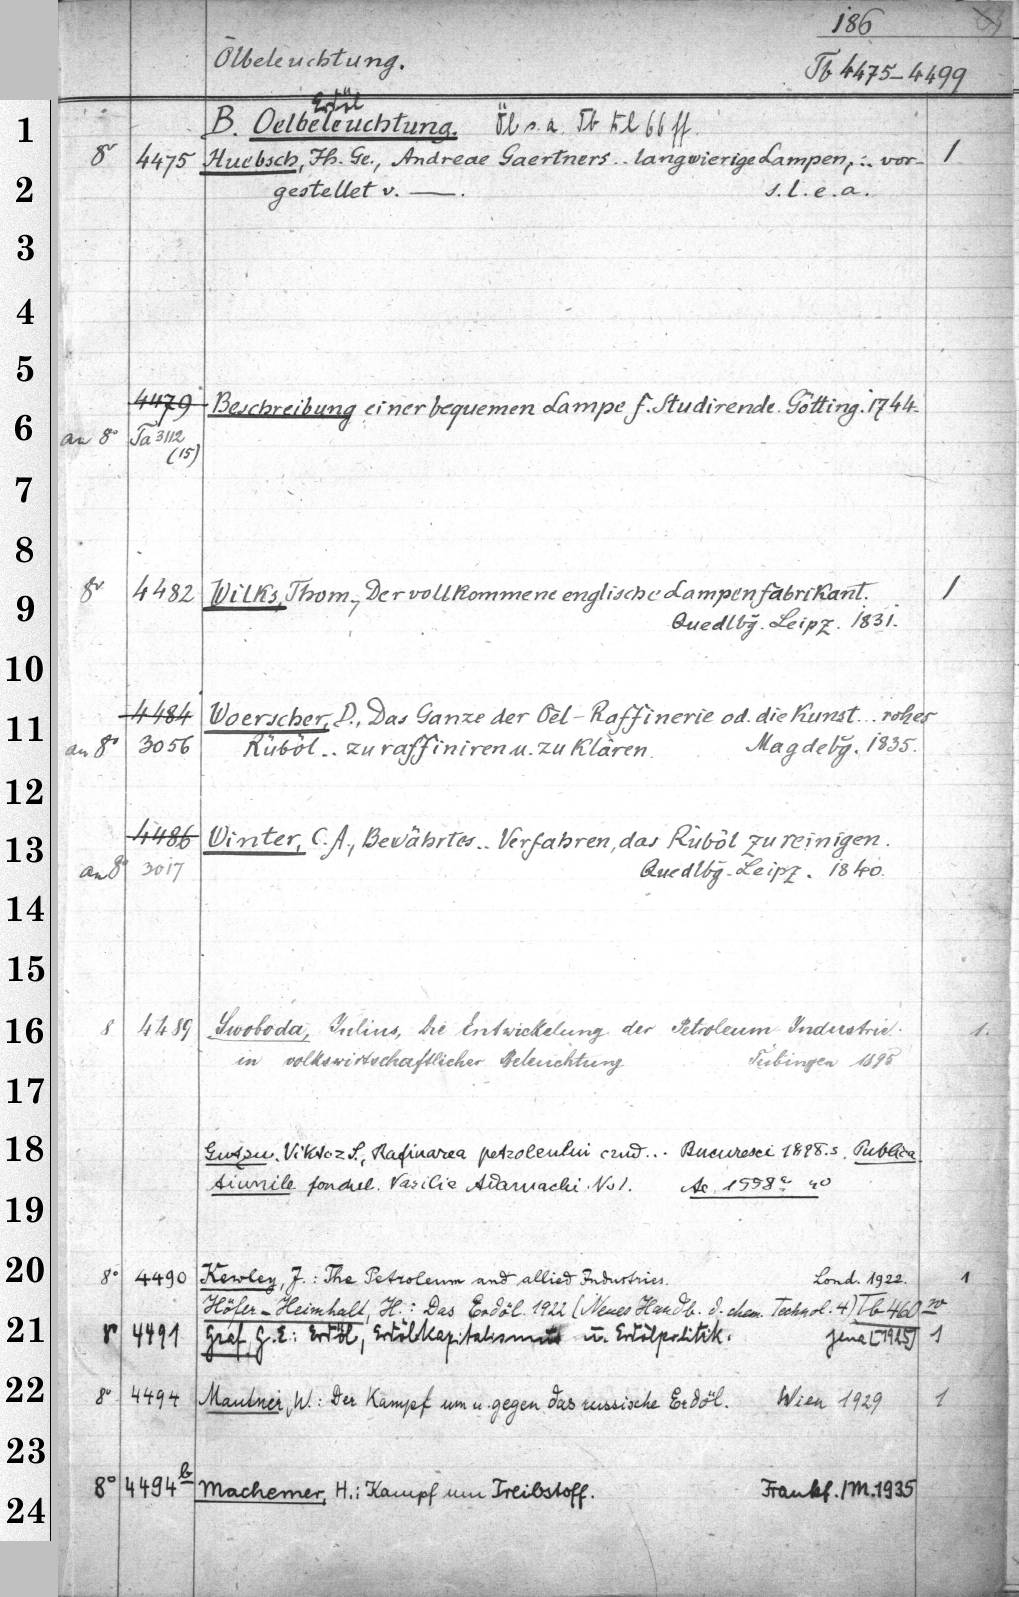 186
Ölbeleuchtung. Tb 4475-4499
Erdöl
1 B. Oelbeleuchtung. Öl s. a. Tb 66 ff.
8° 4475 Huebsch, Th. Ge., Andreae Gaertners .. langwierige Lampen, .. vor- 1
2 gestellet v. —. s. l. e. a.
3
4
5
4479 Beschreibung einer bequemen Lampe f. Studirende. Götting. 1744.
6 an 8° Ta 3112
(15)
7
8
8° 4482 Wilks, Thom., Der vollkommene englische Lampenfabrikant. 1
9 Quedlbg. Leipz. 1831.
10
4484 Woerscher, D., Das Ganze der Oel-Raffinerie od. die Kunst... rohes
11 an 8° 3056 Rüböl .. zu raffiniren u. zu klären. Magdebg. 1835.
12
4486 Winter, C. A., Bewährtes .. Verfahren, das Rüböl zu reinigen.
13 an 8° 3017 Quedlbg. Leipz. 1840.
14
15
16 8 4489 Swoboda, Julius, Die Entwickelung der Petroleum Industrie 1.
in volkswirtschaftlicher Beleuchtung Tübingen 1895
17
18 Viktor S., Rafinarea petroleului crud... Bucuresci 1898. s. Publica-
tiunile fondul. Vasilie Adamachi No 1. Ac. 1998
19
20 8° 4490 Kewley, J.: The Petroleum and allied Industries. Lond. 1922. 1
Höfer-Heimhalt, H.: Das Erdöl. 1922 (Neues Handb. d. chem. Technol. 4) Tb 460
21 8° 4491 Graf, G. E.: Erdöl, Erdölkapitalismus u. Erdölpolitik. Jena [1925] 1
22 8° 4494 Mautner, W.: Der Kampf um u. gegen das russische Erdöl. Wien 1929 1
23
8° 4494 b Machemer, H.: Kampf um Treibstoff. Frankf./M. 1935
24